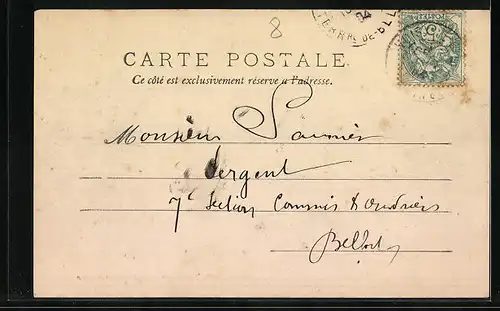 8
04
TERR. DE-BEL
CARTE POSTALE
Ce côté est exclusivement réservé a l'adresse.
Monsieur Saunier
Sergent
7e Section Commis & Ouvriers
Belfort